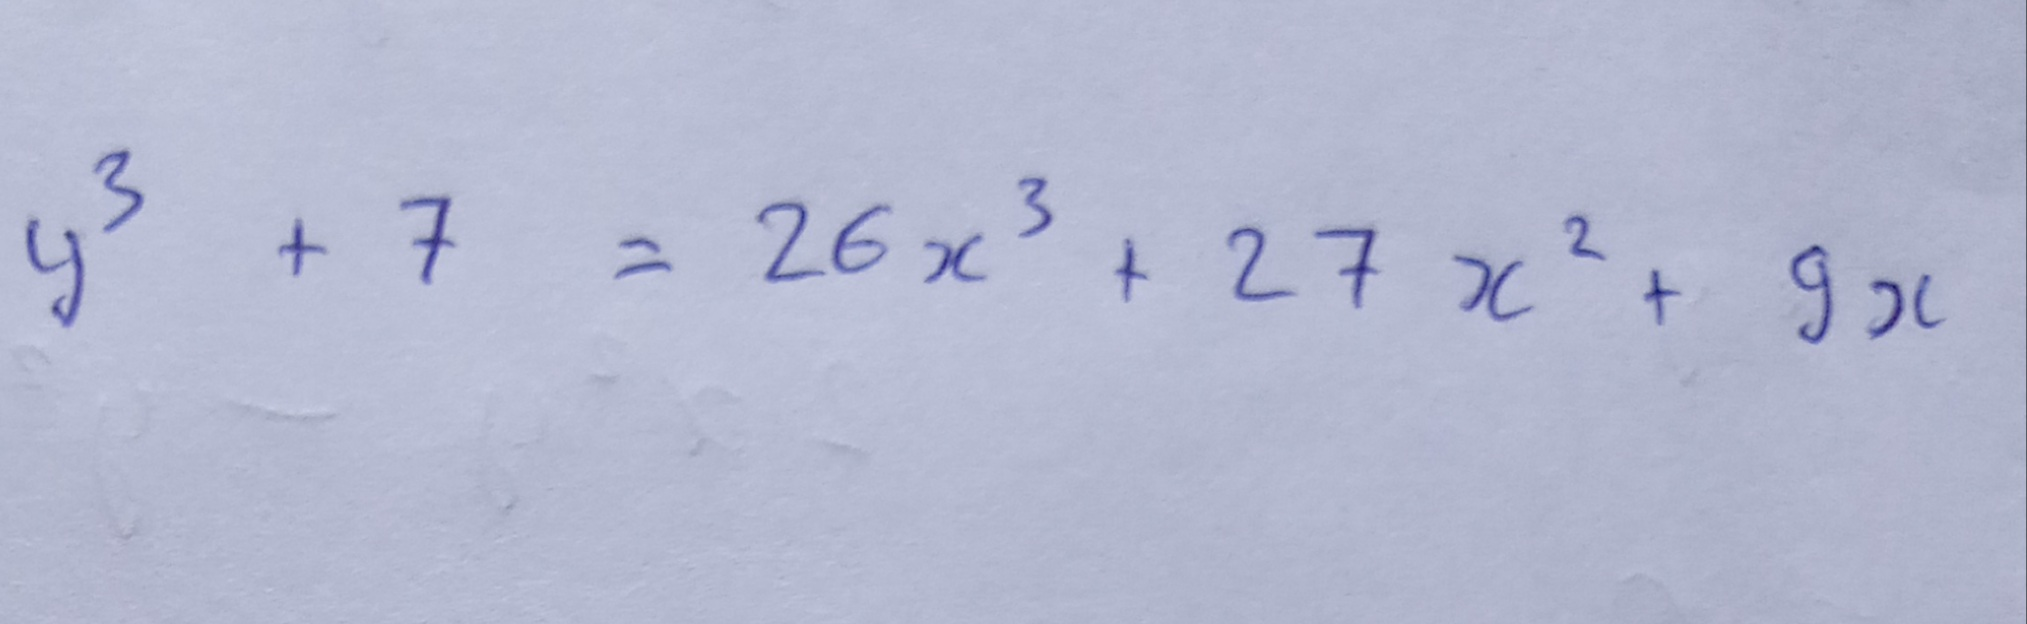 y³ + 7 = 26x³ + 27x² + 9x